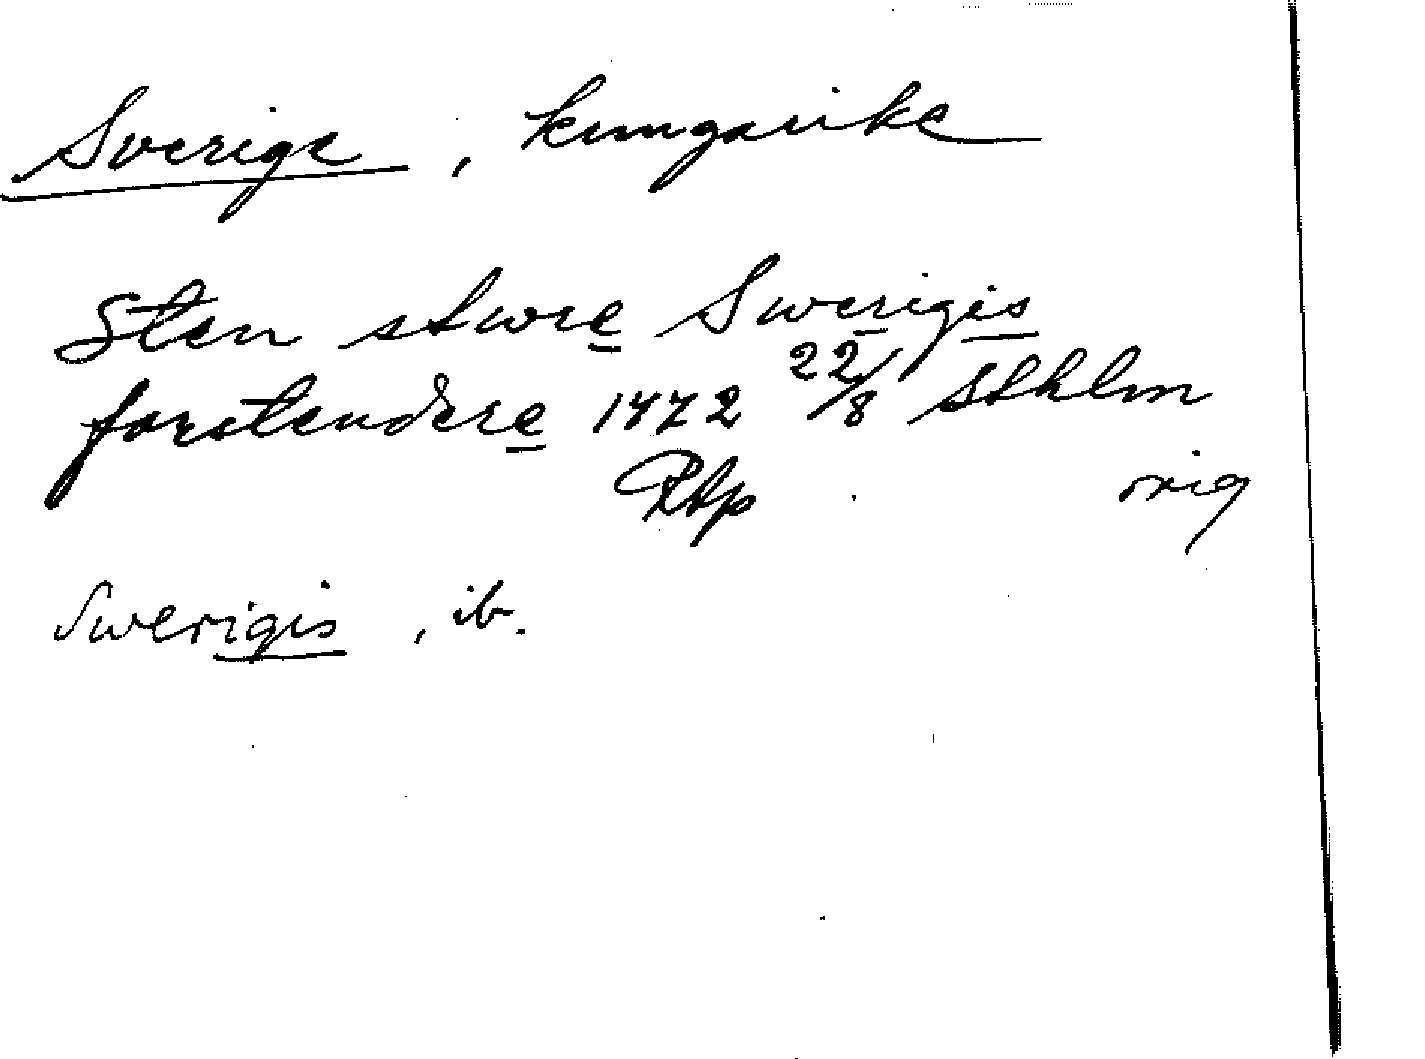 Sverige, kungarike
Sten stwre Swerigis
forstendere 1472 22/8 Sthlm
Rap orig
Swerigis, ib.